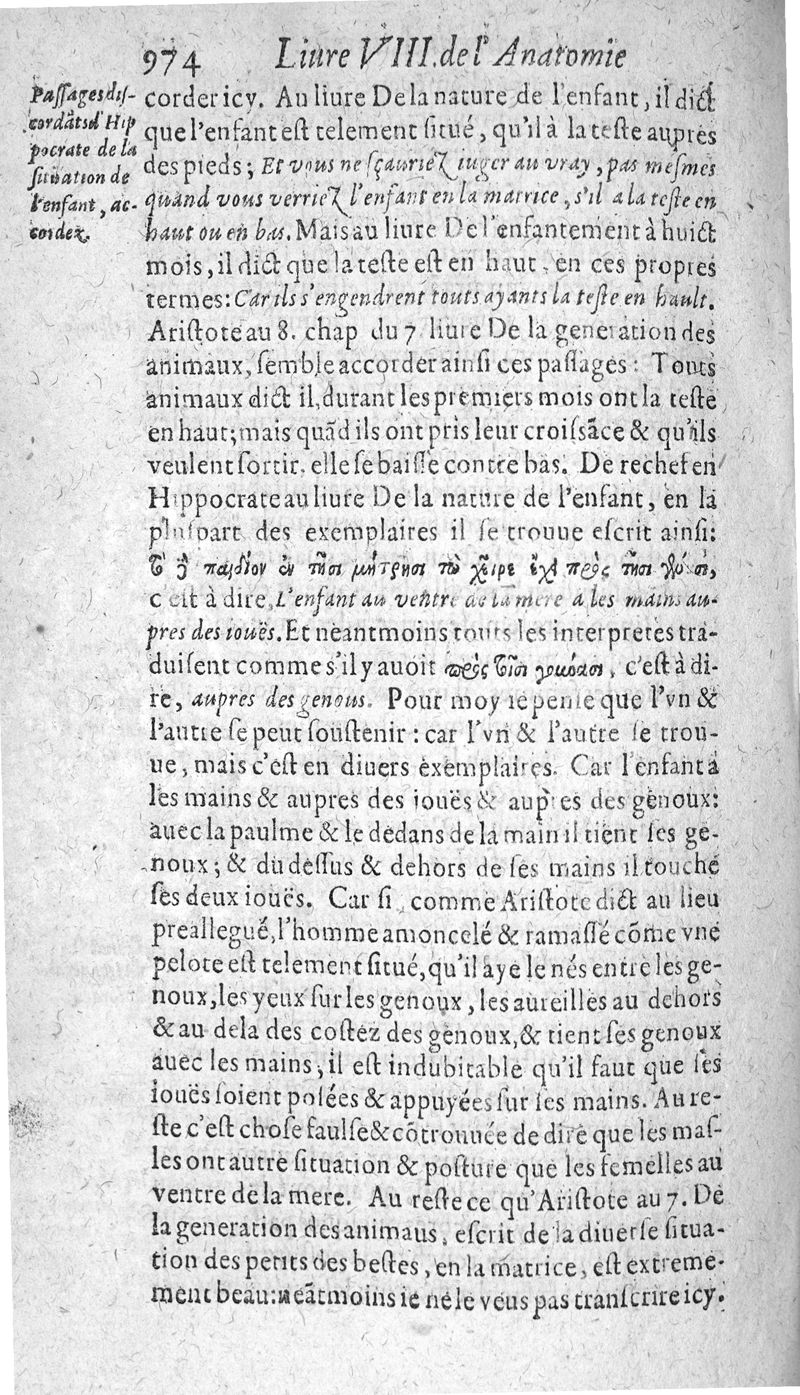 974 Liure VIII. de l'Anatomie
Paſſages diſ-
cordãts d'Hip
pocrate de la
ſituation de
l'enfant, ac-
cordez.
corder icy. Au liure De la nature de l'enfant, il dict
que l'enfant eſt telement ſitué, qu'il à la teſte aupres
des pieds; Et vous ne ſçauriez iuger au vray, pas meſmes
quand vous verriez l'enfant en la matrice, s'il a la teſte en
haut ou en bas. Mais au liure De l'enfantement à huict
mois, il dict que la teſte eſt en haut, en ces propres
termes: Car ils s'engendrent touts ayants la teſte en hault.
Ariſtote au 8. chap du 7 liure De la generation des
animaux, ſemble accorder ainſi ces paſſages: Touts
animaux dict il, durant les premiers mois ont la teſte
en haut; mais quãd ils ont pris leur croiſsãce & qu'ils
veulent ſortir, elle ſe baiſſe contre bas. De rechef en
Hippocrate au liure De la nature de l'enfant, en la
pluſpart des exemplaires il ſe trouue eſcrit ainſi:
παιδίον ἐν τῇσι μήτρῃσι τὼ χεῖρε ἔχει πρὸς τῇσι
c'eſt à dire, L'enfant au ventre de la mere a les mains au-
pres des iouës. Et neantmoins touts les interpretes tra-
duiſent comme s'il y auoit πρὸς τοῖσι γούνασι, c'eſt à di-
re, aupres des genous. Pour moy ie penſe que l'vn &
l'autre ſe peut ſouſtenir: car l'vn & l'autre ſe trou-
ue, mais c'eſt en diuers exemplaires. Car l'enfant à
les mains & aupres des iouës & aupres des genoux:
auec la paulme & le dedans de la main il tient ſes ge-
noux; & du deſſus & dehors de ſes mains il touche
ſes deux iouës. Car ſi, comme Ariſtote dict au lieu
preallegué, l'homme amoncelé & ramaſſé cõme vne
pelote eſt telement ſitué, qu'il aye le nés entre les ge-
noux, les yeux ſur les genoux, les aureilles au dehors
& au dela des coſtez des genoux, & tient ſes genoux
auec les mains, il eſt indubitable qu'il faut que ſes
iouës ſoient poſées & appuyées ſur ſes mains. Au re-
ſte c'eſt choſe faulſe & cõtrouuée de dire que les maſ-
les ont autre ſituation & poſture que les femelles au
ventre de la mere. Au reſte ce qu'Ariſtote au 7. De
la generation des animaus, eſcrit de la diuerſe ſitua-
tion des petits des beſtes, en la matrice, eſt extreme-
ment beau: neãtmoins ie ne le veus pas tranſcrire icy.